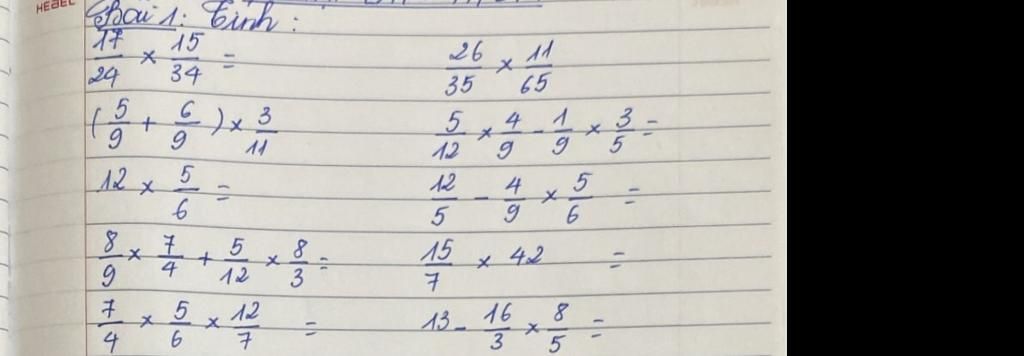 HEBEL
Bài 1: Tính:
17/24 × 15/34 = 26/35 × 11/65
(5/9 + 6/9) × 3/11 5/12 × 4/9 - 1/9 × 3/5 =
12 × 5/6 = 12/5 - 4/9 × 5/6 =
8/9 × 7/4 + 5/12 × 8/3 = 15/7 × 42 =
7/4 × 5/6 × 12/7 = 13 - 16/3 × 8/5 =